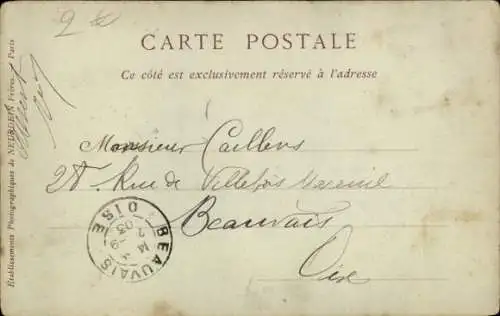 2
CARTE POSTALE
Ce côté est exclusivement réservé à l'adresse
Monsieur Caillens
28 Rue de Villebois Mareuil
Beauvais
Oise
BEAUVAIS
OISE
Etablissements Photographiques de NEURDEIN Frères. — Paris